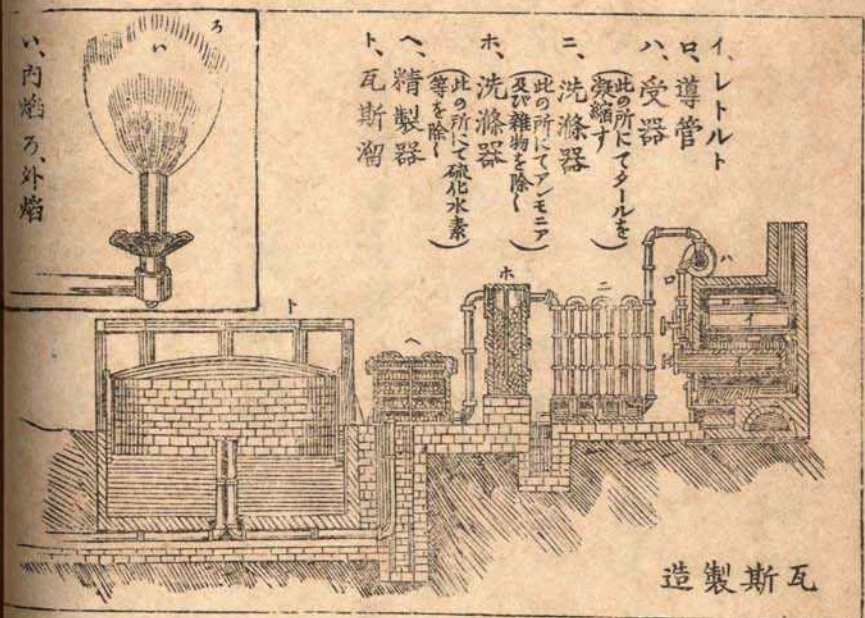 イ、レトルト
ロ、導管
ハ、受器
(此の所にてタールを
凝縮す)
ニ、洗滌器
(此の所にてアンモニア
及び雜物を除く)
ホ、洗滌器
(此の所にて硫化水素
等を除く)
ヘ、精製器
ト、瓦斯溜
ろ
い
い、内焰 ろ、外焰
ト
ヘ
ホ
ニ
ロ
ハ
イ
イ
瓦斯製造